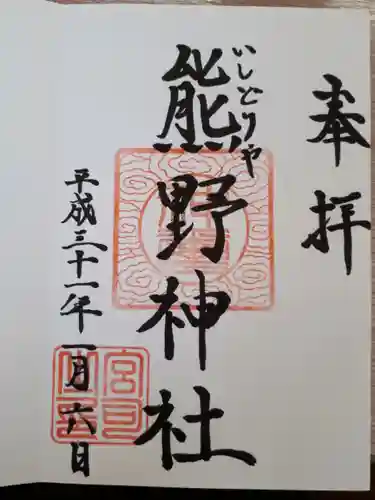 奉拝
いしとりや
熊野神社
平成三十一年一月六日